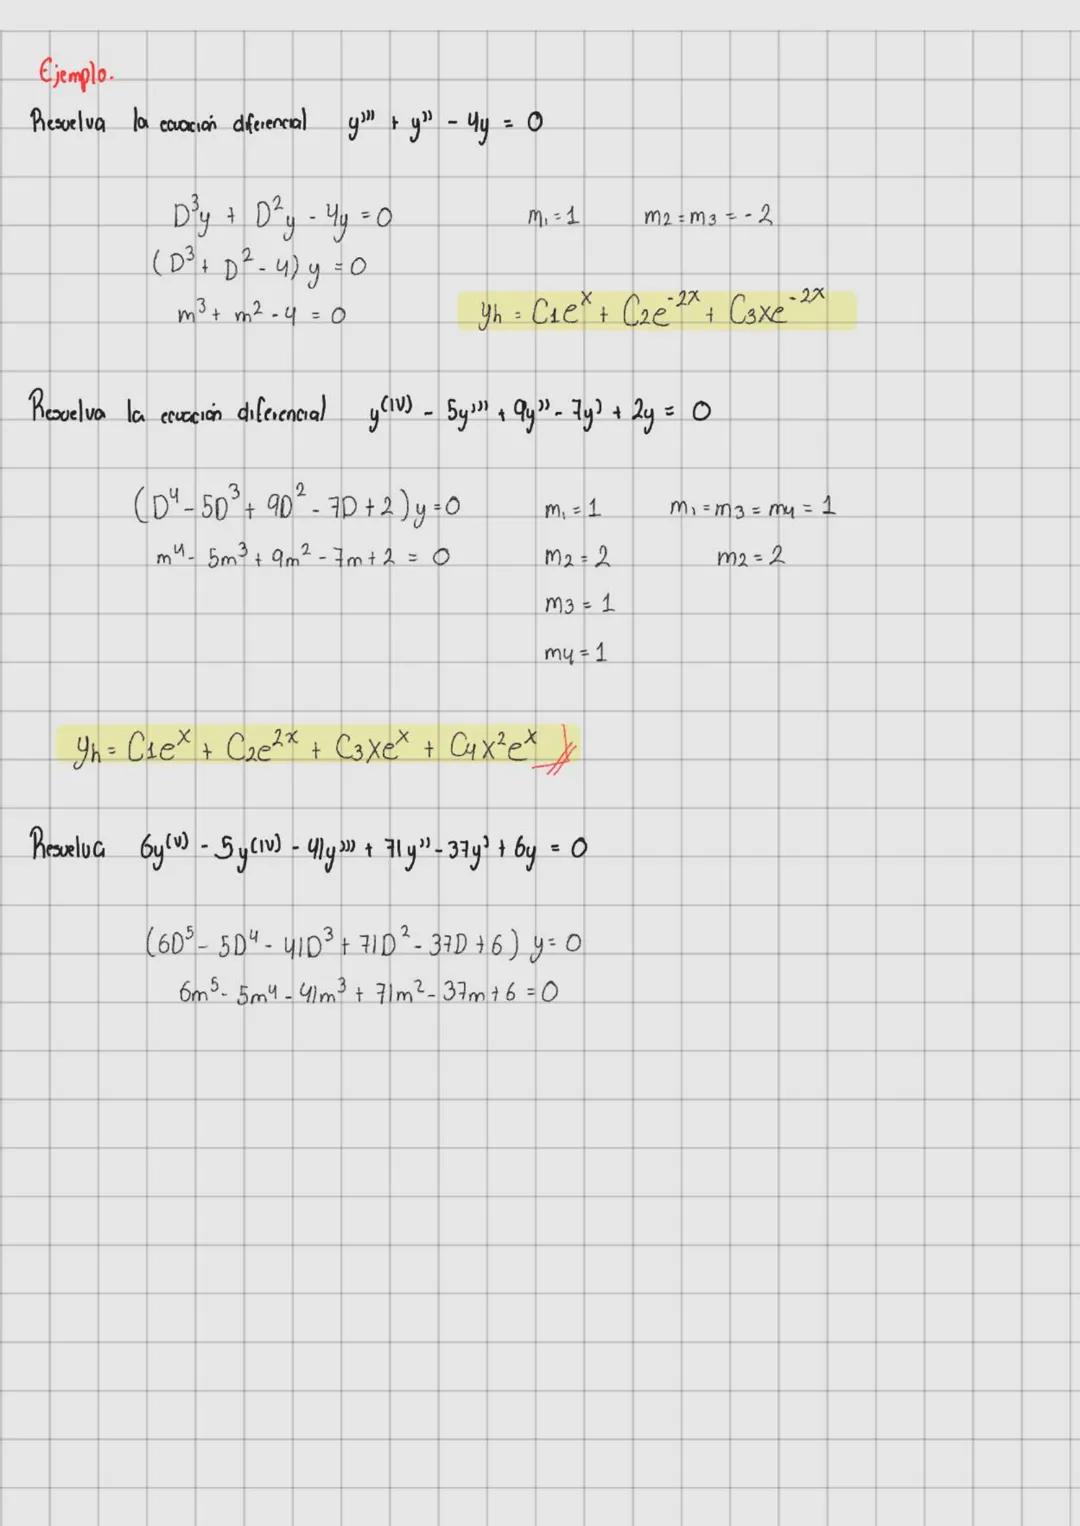 Ejemplo.
Resuelva la ecuación diferencial y''' + y'' - 4y = 0
D³y + D²y - 4y = 0 m₁ = 1 m₂ = m₃ = -2
(D³ + D² - 4) y = 0
m³ + m² - 4 = 0 yh = C1e^x + C2e^-2x + C3xe^-2x
Resuelva la ecuación diferencial y(IV) - 5y''' + 9y'' - 7y' + 2y = 0
(D⁴ - 5D³ + 9D² - 7D + 2) y = 0 m₁ = 1 m₁ = m₃ = m₄ = 1
m⁴ - 5m³ + 9m² - 7m + 2 = 0 m₂ = 2 m₂ = 2
m₃ = 1
m₄ = 1
yh = C1e^x + C2e^2x + C3xe^x + C4x²e^x
Resuelva 6y(V) - 5y(IV) - 41y''' + 71y'' - 37y' + 6y = 0
(6D⁵ - 5D⁴ - 41D³ + 71D² - 37D + 6) y = 0
6m⁵ - 5m⁴ - 41m³ + 71m² - 37m + 6 = 0